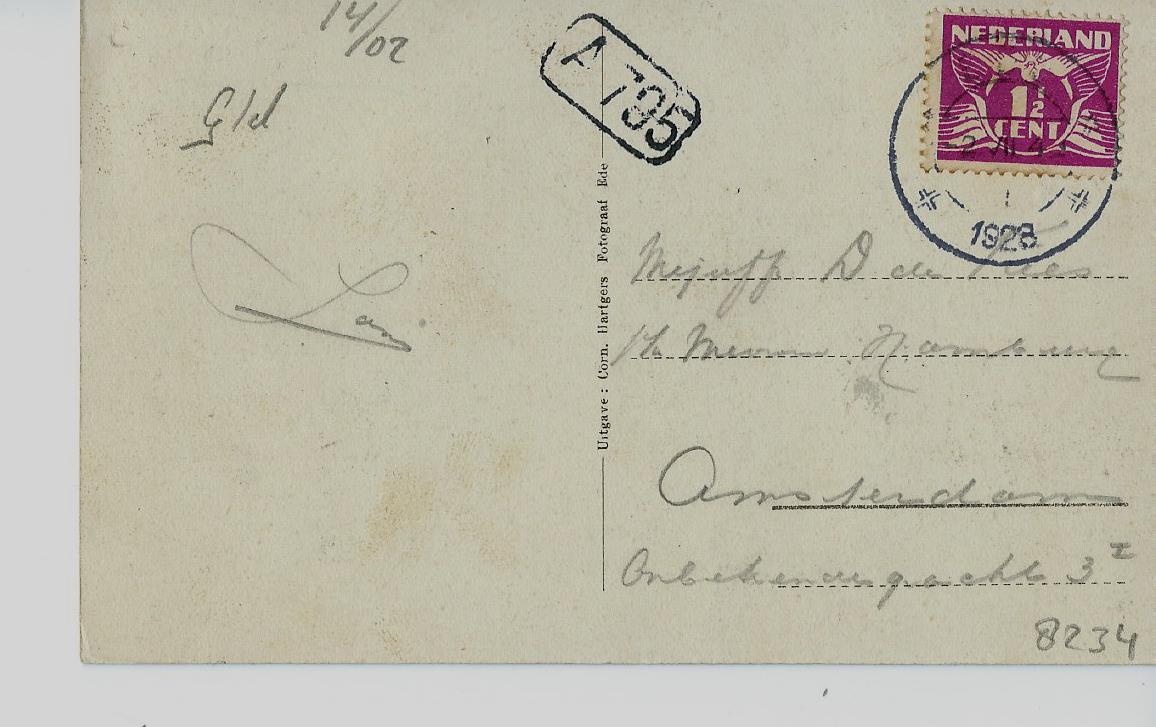 14/02
Gld
A 795
NEDERLAND
1 1/2
CENT
2 VII 4
1928
Uitgave : Corn. Hartgers Fotograaf Ede
Mejuff D de Vries
p/a Mevrouw Hamburg
Amsterdam
Onbekendegracht 3 I
8234